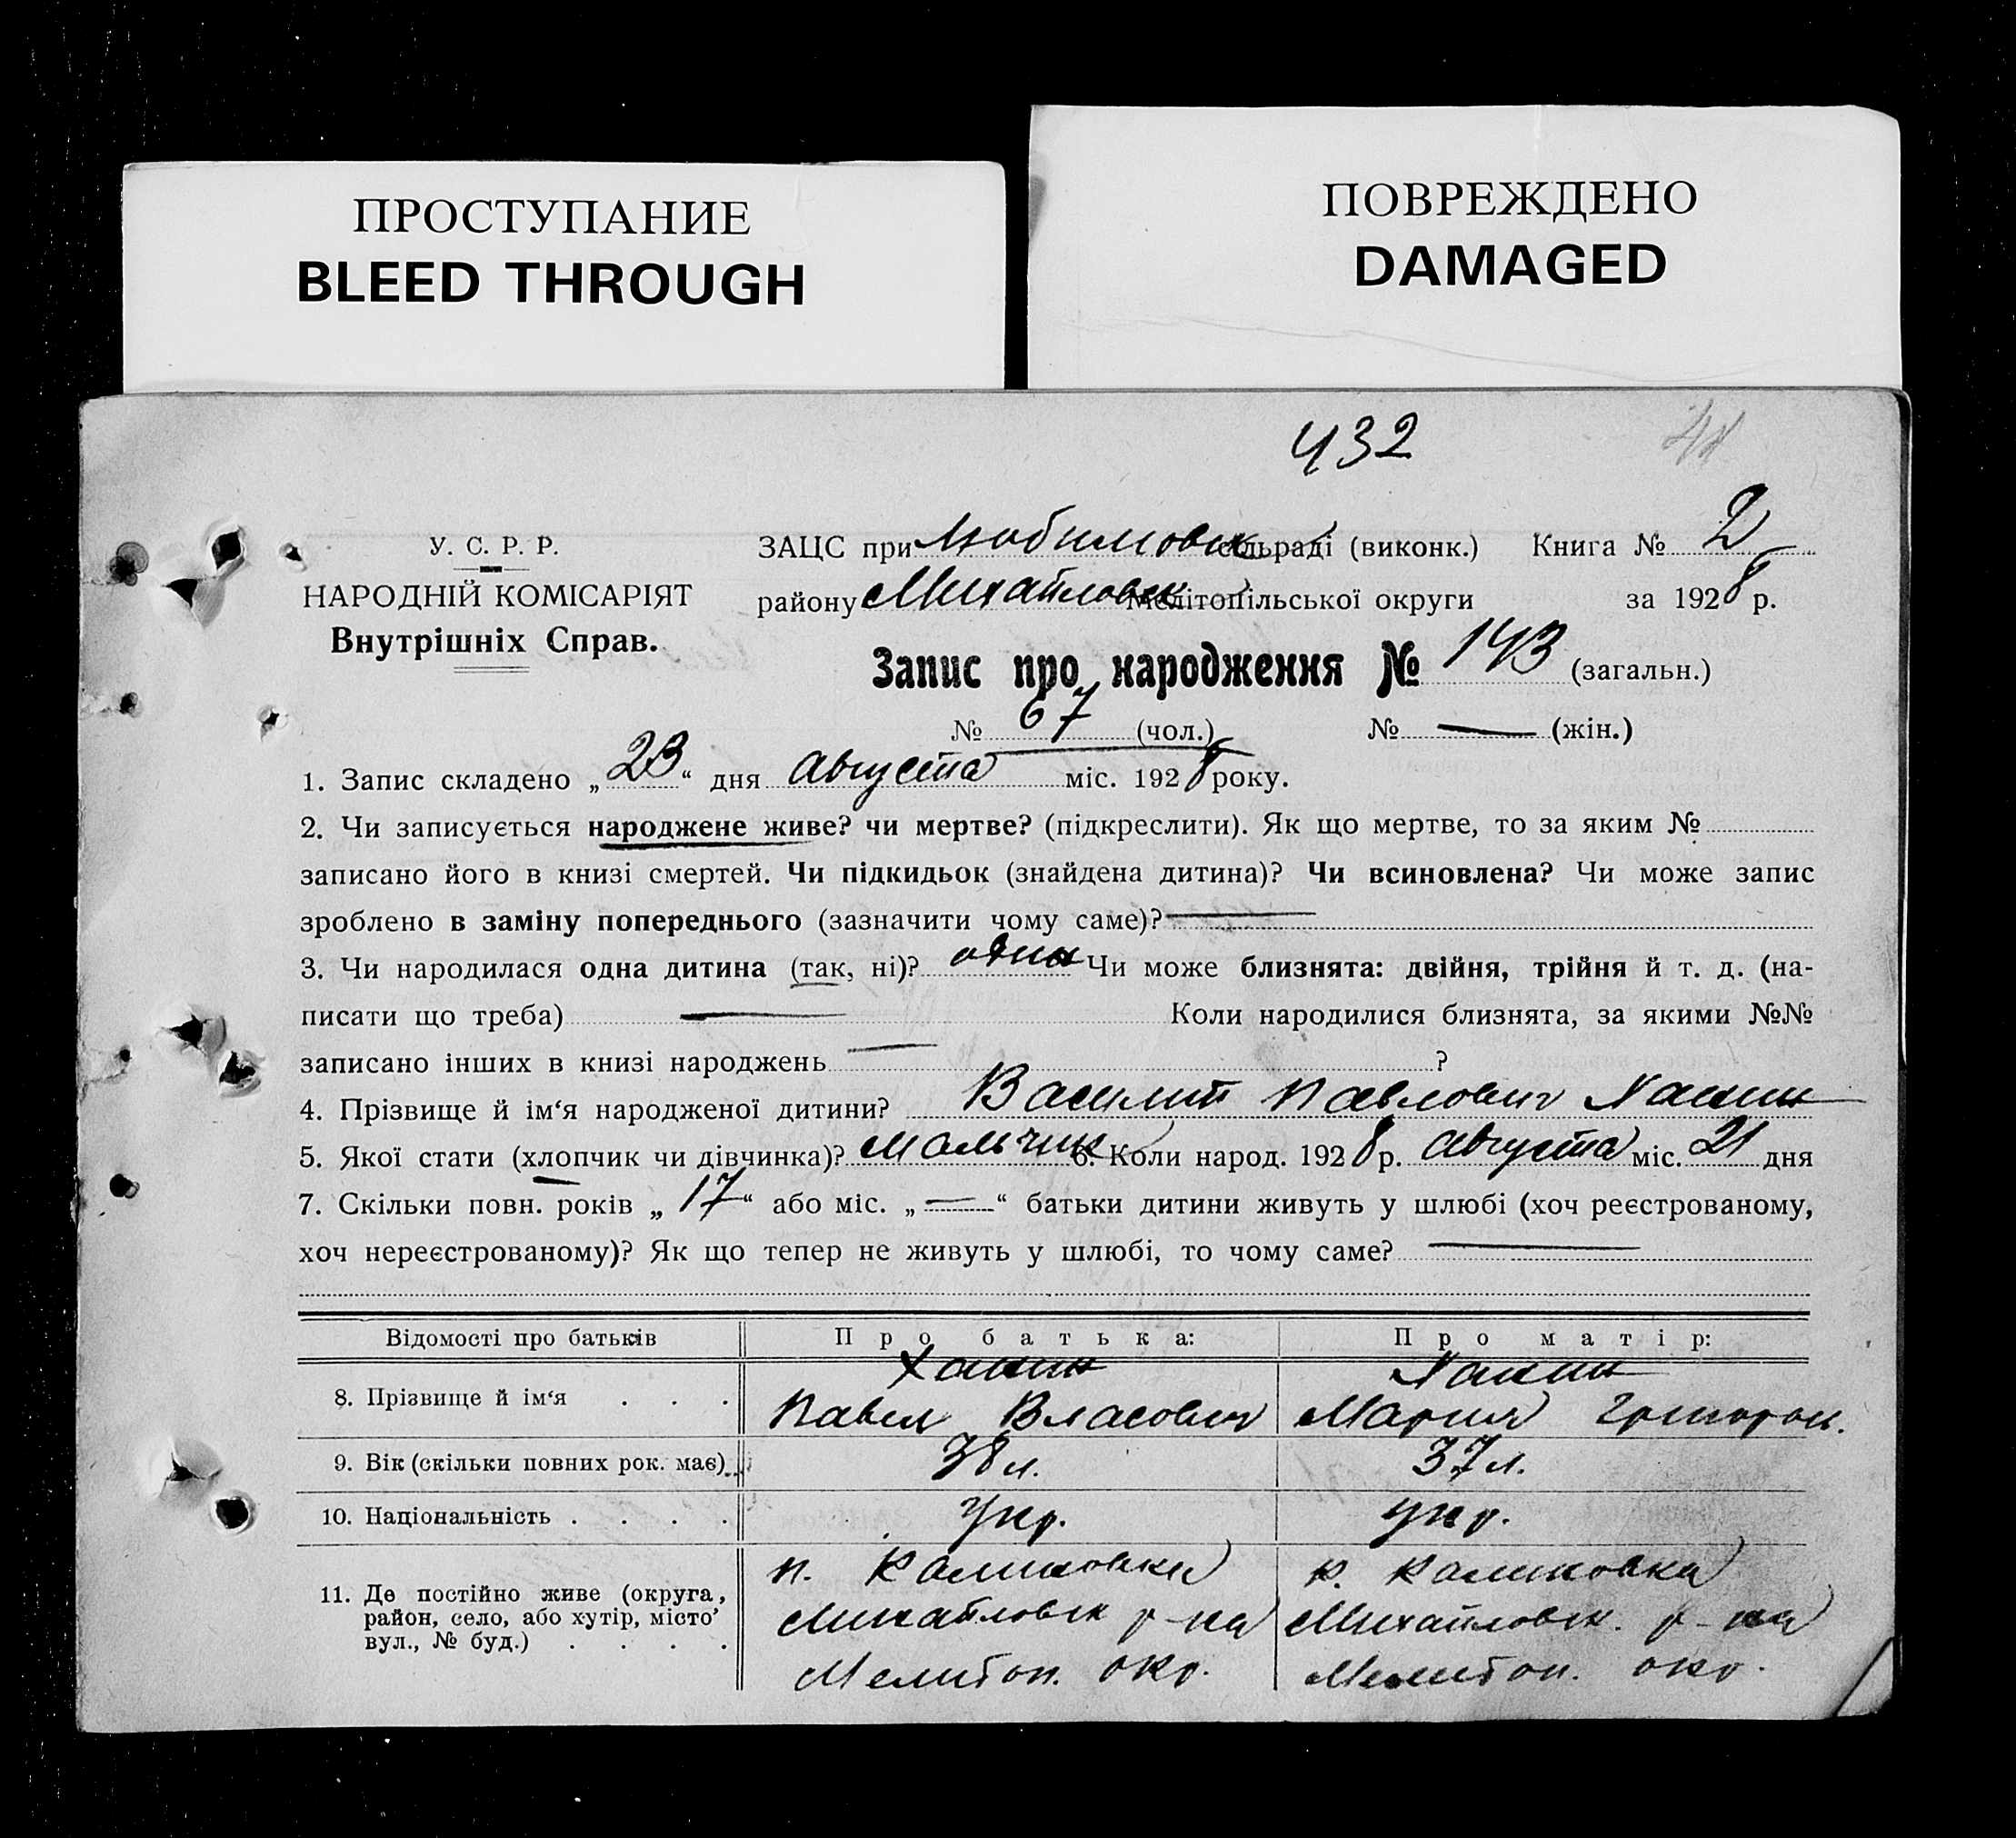 ПРОСТУПАНИЕ
BLEED THROUGH
ПОВРЕЖДЕНО
DAMAGED
432
У. С. Р. Р.
НАРОДНІЙ КОМІСАРІЯТ
Внутрішніх Справ.
ЗАЦС при Любимовск сільраді (виконк.) Книга № 2
району Михайловск Мелітопільської округи за 1928 р.
Запис про народження № 143 (загальн.)
№ 67 (чол.) № — (жін.)
1. Запис складено „23“ дня Августа міс. 1928 року.
2. Чи записується народжене живе? чи мертве? (підкреслити). Як що мертве, то за яким №
записано його в книзі смертей. Чи підкидьок (знайдена дитина)? Чи всиновлена? Чи може запис
зроблено в заміну попереднього (зазначити чому саме)? —
3. Чи народилася одна дитина (так, ні)? одна Чи може близнята: двійня, трійня й т. д. (на-
писати що треба) — Коли народилися близнята, за якими №№
записано інших в книзі народжень — ?
4. Прізвище й ім‘я народженої дитини? Василий Павлович
5. Якої стати (хлопчик чи дівчинка)? мальчик 6. Коли народ. 1928 р. Августа міс. 21 дня
7. Скільки повн. років „17“ або міс. „—“ батьки дитини живуть у шлюбі (хоч реєстрованому,
хоч нереєстрованому)? Як що тепер не живуть у шлюбі, то чому саме? —
Відомості про батьків Про батька: Про матір:
8. Прізвище й ім‘я . . . Павел Власович Мария Григоров.
9. Вік (скільки повних рок. має) 38 л. 37 л.
10. Національність . . . . Укр. Укр.
11. Де постійно живе (округа,
район, село, або хутір, місто,
вул., № буд.) . . . .
Калиновка
Михайловск р-на
Мелитоп. окр.
Калиновка
Михайловск. р-на
Мелитоп. окр.